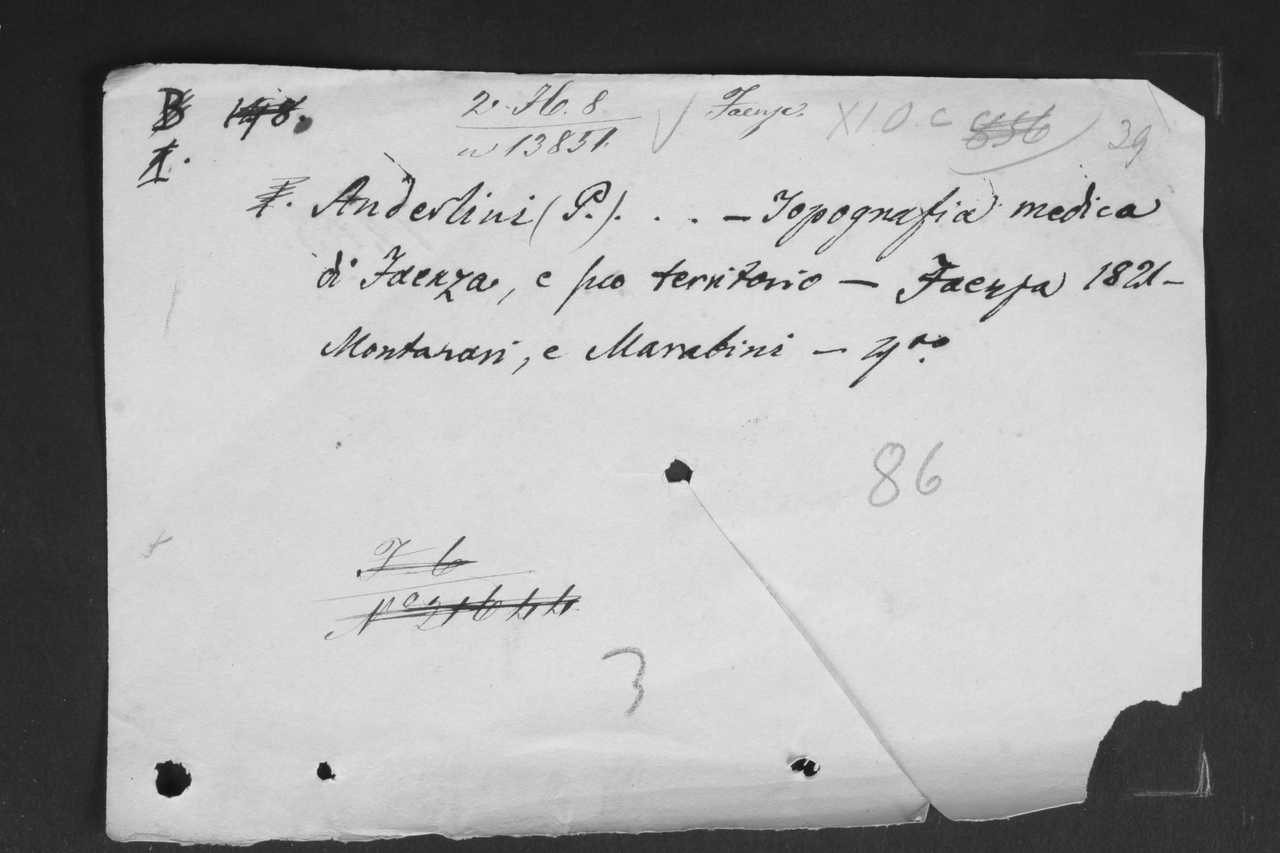 B 198. 2. H. 8 Faenza XI O. C 856 39
I. n 13851.
F. Anderlini (P.). . . — Topografia medica
di Faenza, e suo territorio — Faenza 1821 —
Montanari, e Marabini — 4to.
86
F 6
No 21644.
3